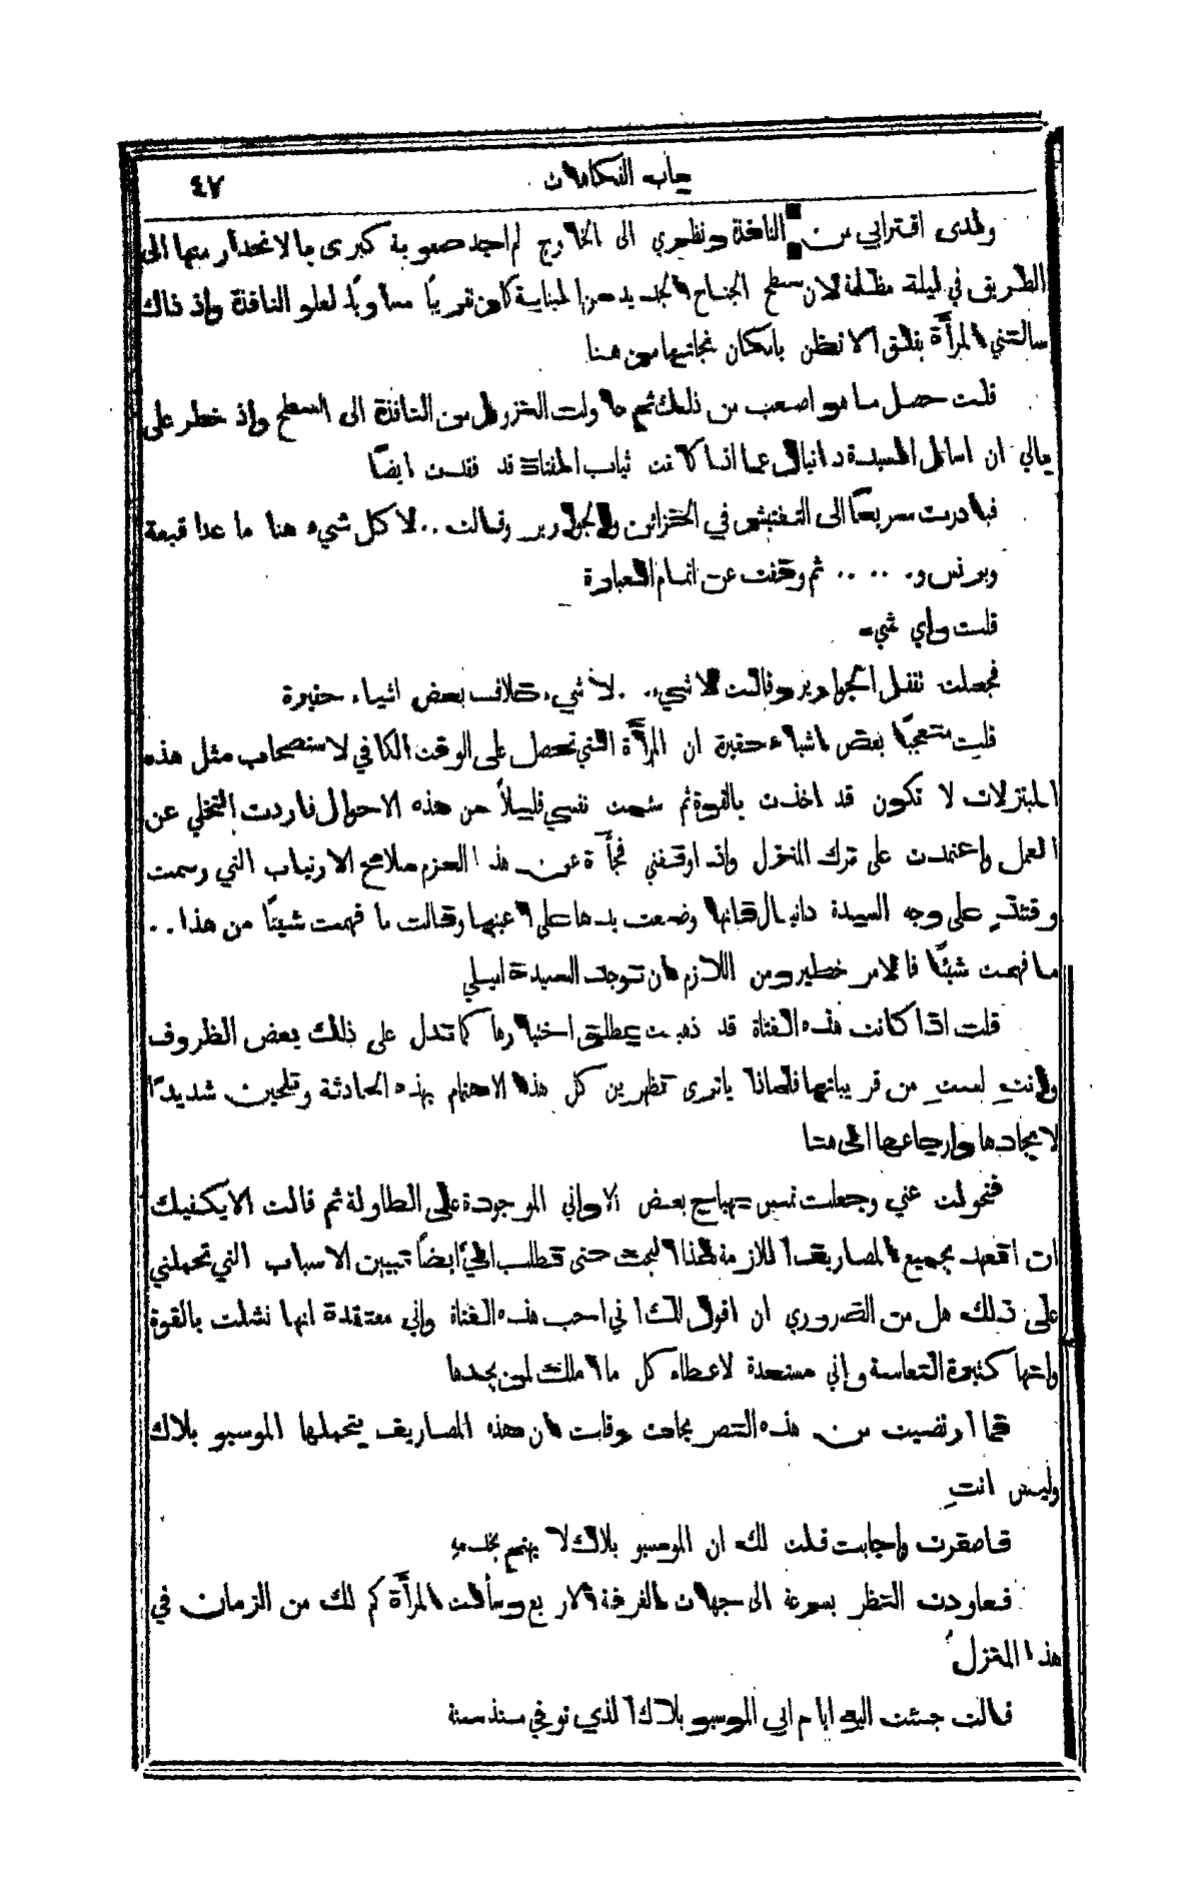 باب الفكاهات ٤٧
ولدى اقترابي من النافذة ونظري الى الخارج لم اجد صعوبة كبرى بالانحدار منها الى
الطريق في ليلة مظلمة لان سطح الجناح الجديد من البناية كان تقريبًا مساويًا لعلو النافذة واذ ذاك
سالتني المرأة بقلق الا تظن بامكان نجاتها من هنا
قلت حصل ما هو اصعب من ذلك ثم حاولت النزول من النافذة الى السطح واذ خطر على
بالي ان اسائل السيدة دانيال عما اذا كانت ثياب الفتاة قد فقدت ايضًا
فبادرت سريعًا الى التفتيش في الخزائن والجوارير وقالت ..لا كل شيء هنا ما عدا قبعة
وبرنس و. .... ثم وقفت عن اتمام العبارة
قلت واي شيء
فجعلت تقفل الجوارير وقالت لا شيء. .لا شيء خلاف بعض اشياء حقيرة
قلت متعجبًا بعض اشياء حقيرة ان المرأة التي تحصل على الوقت الكافي لاستصحاب مثل هذه
المبتزلات لا تكون قد اخذت بالقوة ثم سئمت نفسي قليلاً من هذه الاحوال فاردت التخلي عن
العمل واعتمدت على ترك المنزل واذ اوقفني فجأة عن هذا العزم ملامح الارتياب التي رسمت
وقتئذٍ على وجه السيدة دانيال فانها وضعت يدها على اعينها وقالت ما فهمت شيئًا من هذا..
ما فهمت شيئًا فالامر خطير ومن اللازم ان توجد السيدة اميلي
قلت اذا كانت هذه الفتاة قد ذهبت بمطلق اختيارها كما تدل على ذلك بعض الظروف
وانتِ لستِ من قريباتها فلماذا يا ترى تظهرين كل هذا الاهتمام بهذه الحادثة وتلحين شديدًا
لايجادها وارجاعها الى هنا
فتحولت عني وجعلت تمس بهياج بعض الاواني الموجودة على الطاولة ثم قالت الا يكفيك
ان اتعهد بجميع المصاريف اللازمة لهذا البحث حتى تطلب اليَّ ايضًا تبيين الاسباب التي تحملني
على ذلك هل من الضروري ان اقول لك اني احب هذه الفتاة واني معتقدة انها نشلت بالقوة
وانها كثيرة التعاسة واني مستعدة لاعطاء كل ما املك لمن يجدها
فما ارتضيت من هذه التصريحات وقلت ان هذه المصاريف يتحملها الموسيو بلاك
وليس انتِ
فاصفرت واجابت قلت لك ان الموسيو بلاك لا يهتم بخدمه
فعاودت النظر بسرعة الى جهات الغرفة الاربع وسألت المرأة كم لك من الزمان في
هذا المنزل
قالت جئت اليه ايام ابي الموسيو بلاك الذي توفي منذ سنة